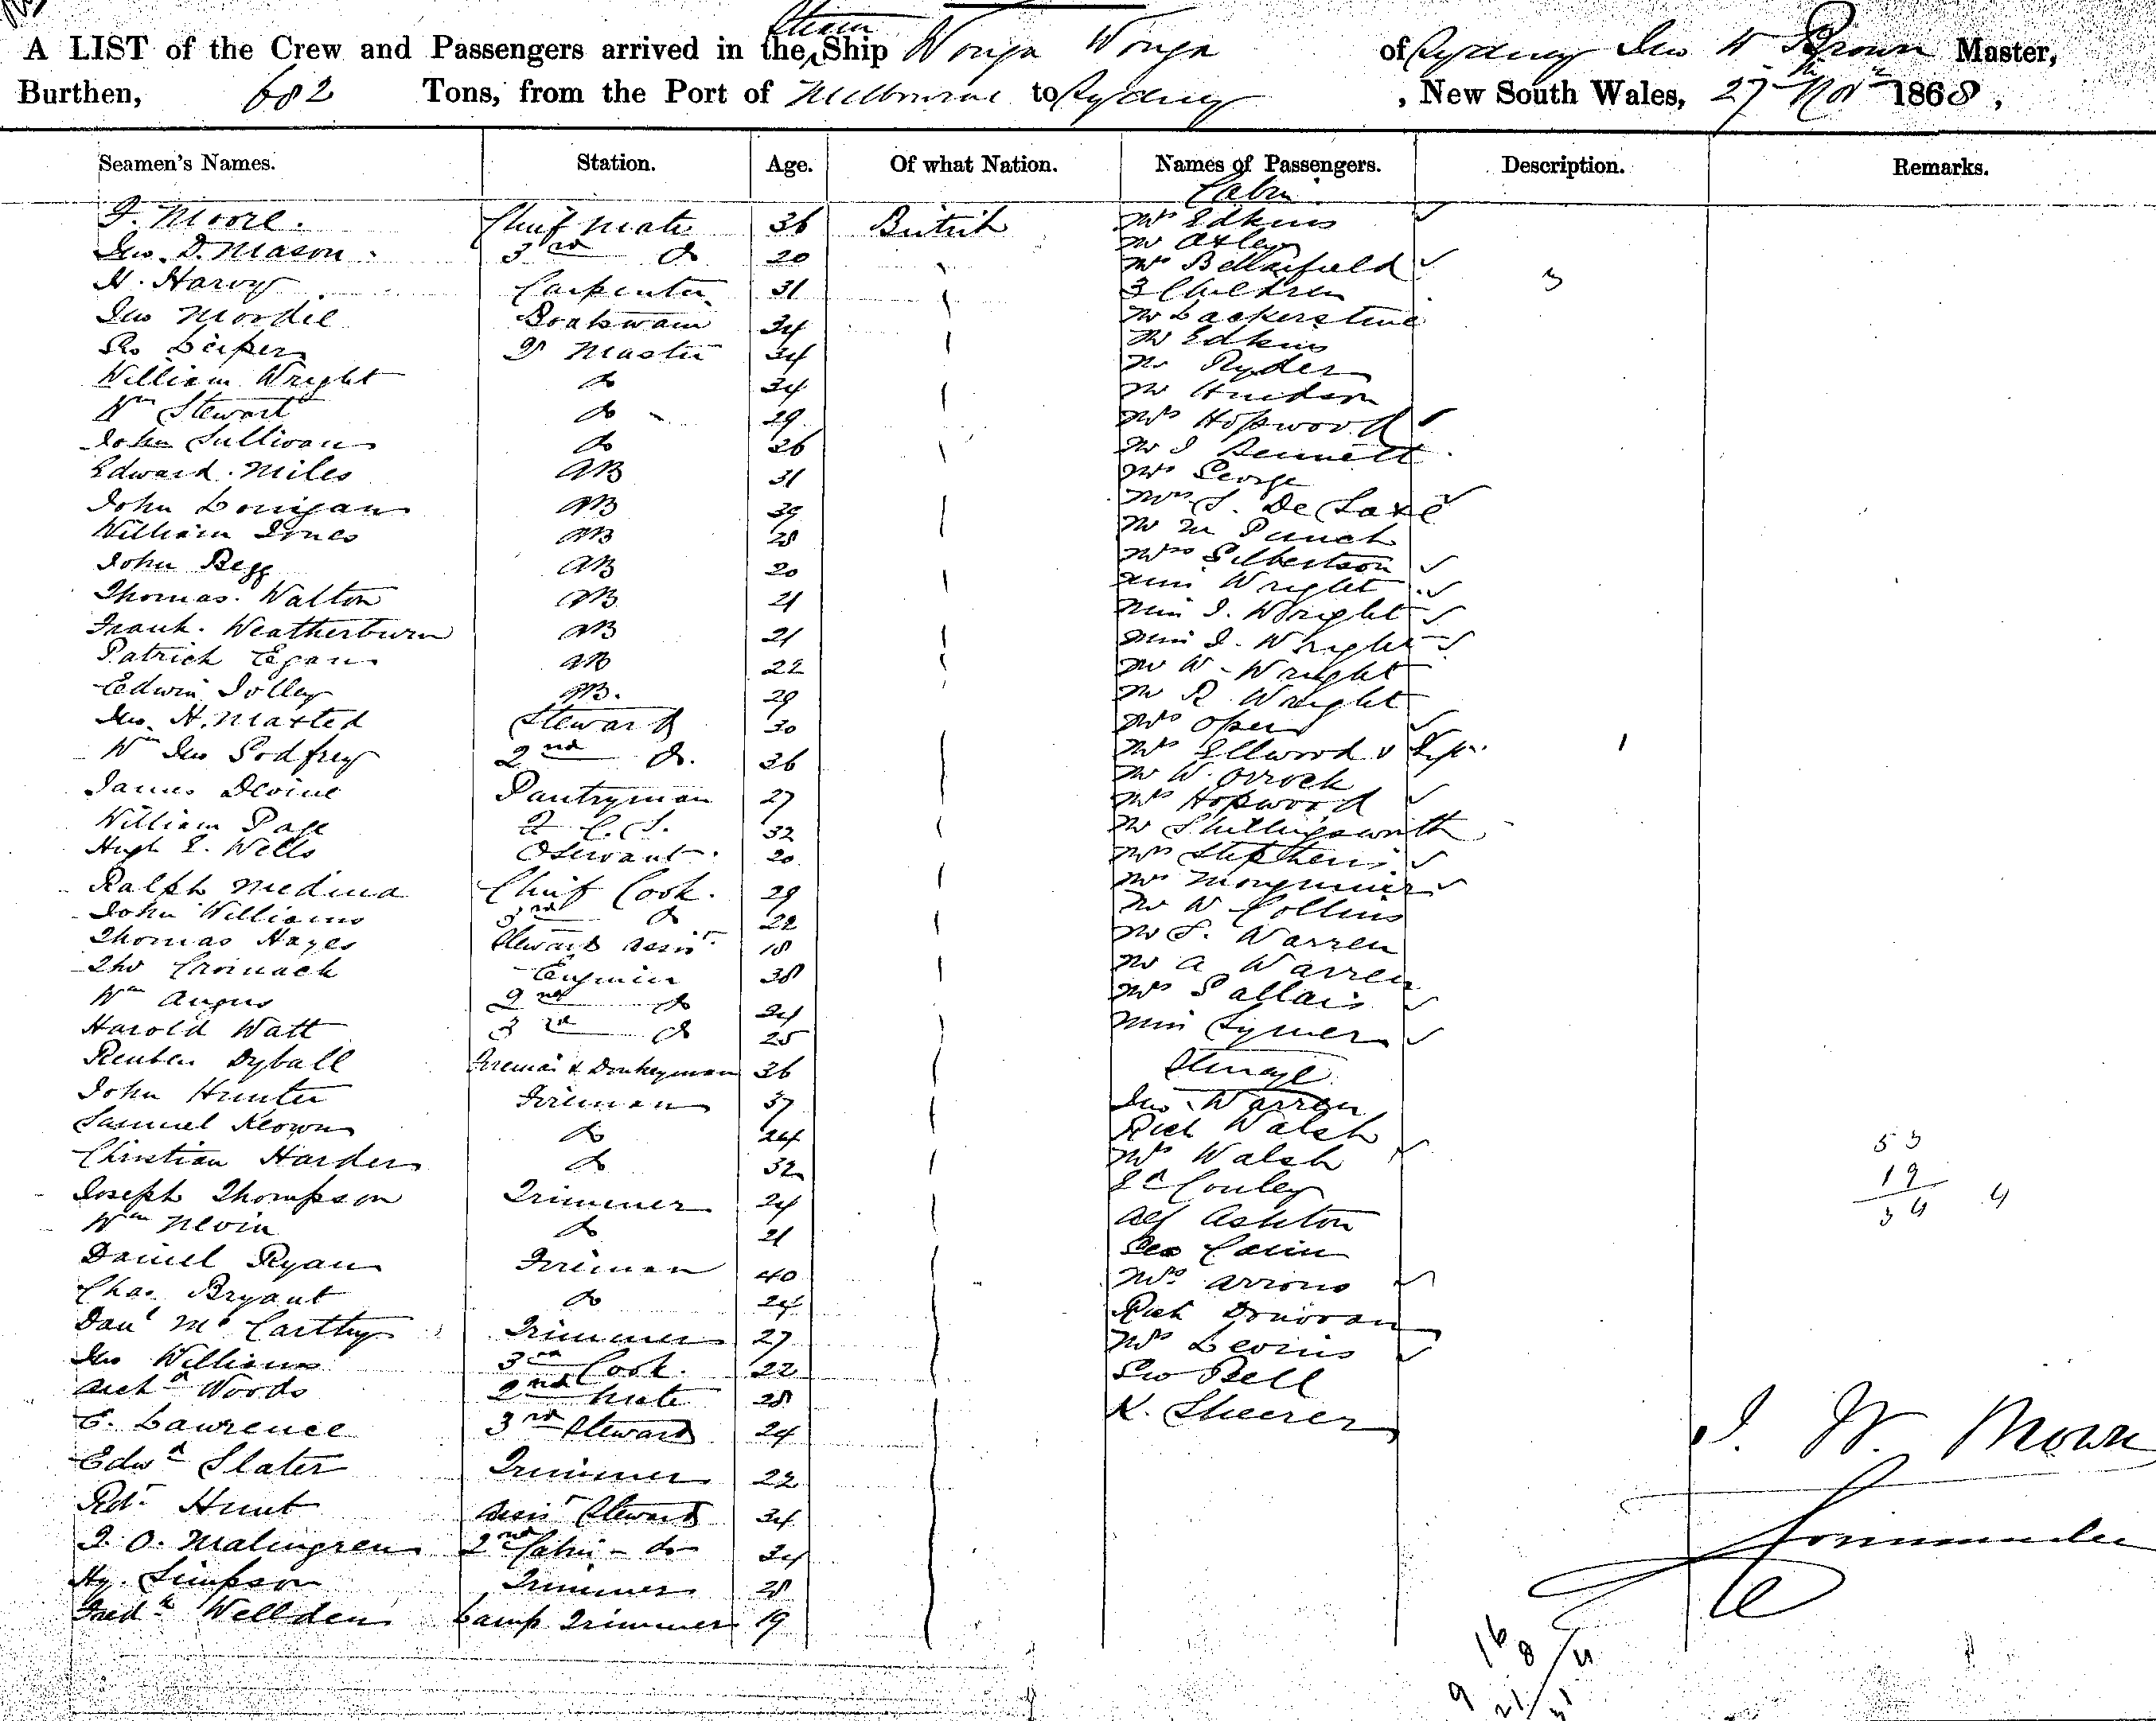 A LIST of the Crew and Passengers arrived in the Steam Ship Wonga Wonga of Sydney Jno W Brown Master,
Burthen, 682 Tons, from the Port of Melbourne to Sydney, New South Wales, 27th Novr 1868,
Seamen's Names. Station. Age. Of what Nation. Names of Passengers. Description. Remarks.
Cabin
F. Moore. Chief Mate 36 British Mrs Edkins
Jno. D. Mason. 3rd do 20 Mr Oxley
H. Harvy Carpenter 31 Mrs Bellasfield
3 Children 3
Jno Moodie Boatswain 34 Mr Lackersteine
Ro Leiper Qr Master 34 Mr Edkins
William Wright do 34 Mr Ryder
Wm Stewart do 29 Mr Hudson
John Sullivan do 26 Mrs Hopwood
Edward Miles AB 31 Mr J Bennett
Mr George
John Lonigan AB 39 Mrs S. De Saxe
William Jones AB 28 Mr M Punch
John Begg AB 20 Mrs Gilbertson
Thomas Walton AB 21 Miss Wright
Frank Weatherburn AB 21 Miss J. Wright
Patrick Egan AB 22 Miss J. Wright
Edwin Jolley AB. 29 Mr W. Wright
Jno. H. Maxted Steward 30 Mr R Wright
Wm Jno Godfrey 2nd do. 36 Mrs Open
Mrs Ellwood & Inft 1
James Devine Pantryman 27 Mr W. Orrock
William Page 2 C. S. 32 Mrs Hopwood
Hugh E. Wells O Servant 20 Mr Shillingsworth
Mrs Stephens
Ralph Medina Chief Cook. 29 Mrs
John Williams 3rd do 22 Mr W Collins
Thomas Hayes Steward Assist 18 Mr S. Warren
Tho Cromack Engineer 38 Mr A Warren
Wm Angus 2nd do 24 Mrs Pallais
Harold Watt 3rd do 25 Miss Symes
Reuben Dyball Fireman & Donkeyman 36 Steerage
John Hunter Fireman 37 Jno Warren
Samuel Keown do 24 Rich Walsh
Christian Harder do 32 Mrs Walsh 53
Joseph Thompson Trimmer 24 Ed Conley 19
Wm Nevin do 21 Alf Ashton 34 4
Daniel Ryan Fireman 40 Geo Cain
Chas. Bryant do 24 Mrs Arrons
Danl McCarthy Trimmer 27 Rich Donovan
Jno Williams 3rd Cook. 22 Mrs Levins
Richd Woods 2nd Mate 28 Geo Bell
C. Lawrence 3rd Steward 24 K. Sheerer
J. W. Brown
Edwd Slater Trimmer 22
Robt Hunt Assist Steward 34
Commander
J. O. Malingren 2nd Cabin - do 34
Hy. Simpson Trimmer 28
Fredk Wellden Lamp Trimmer 19
16
8
9
21